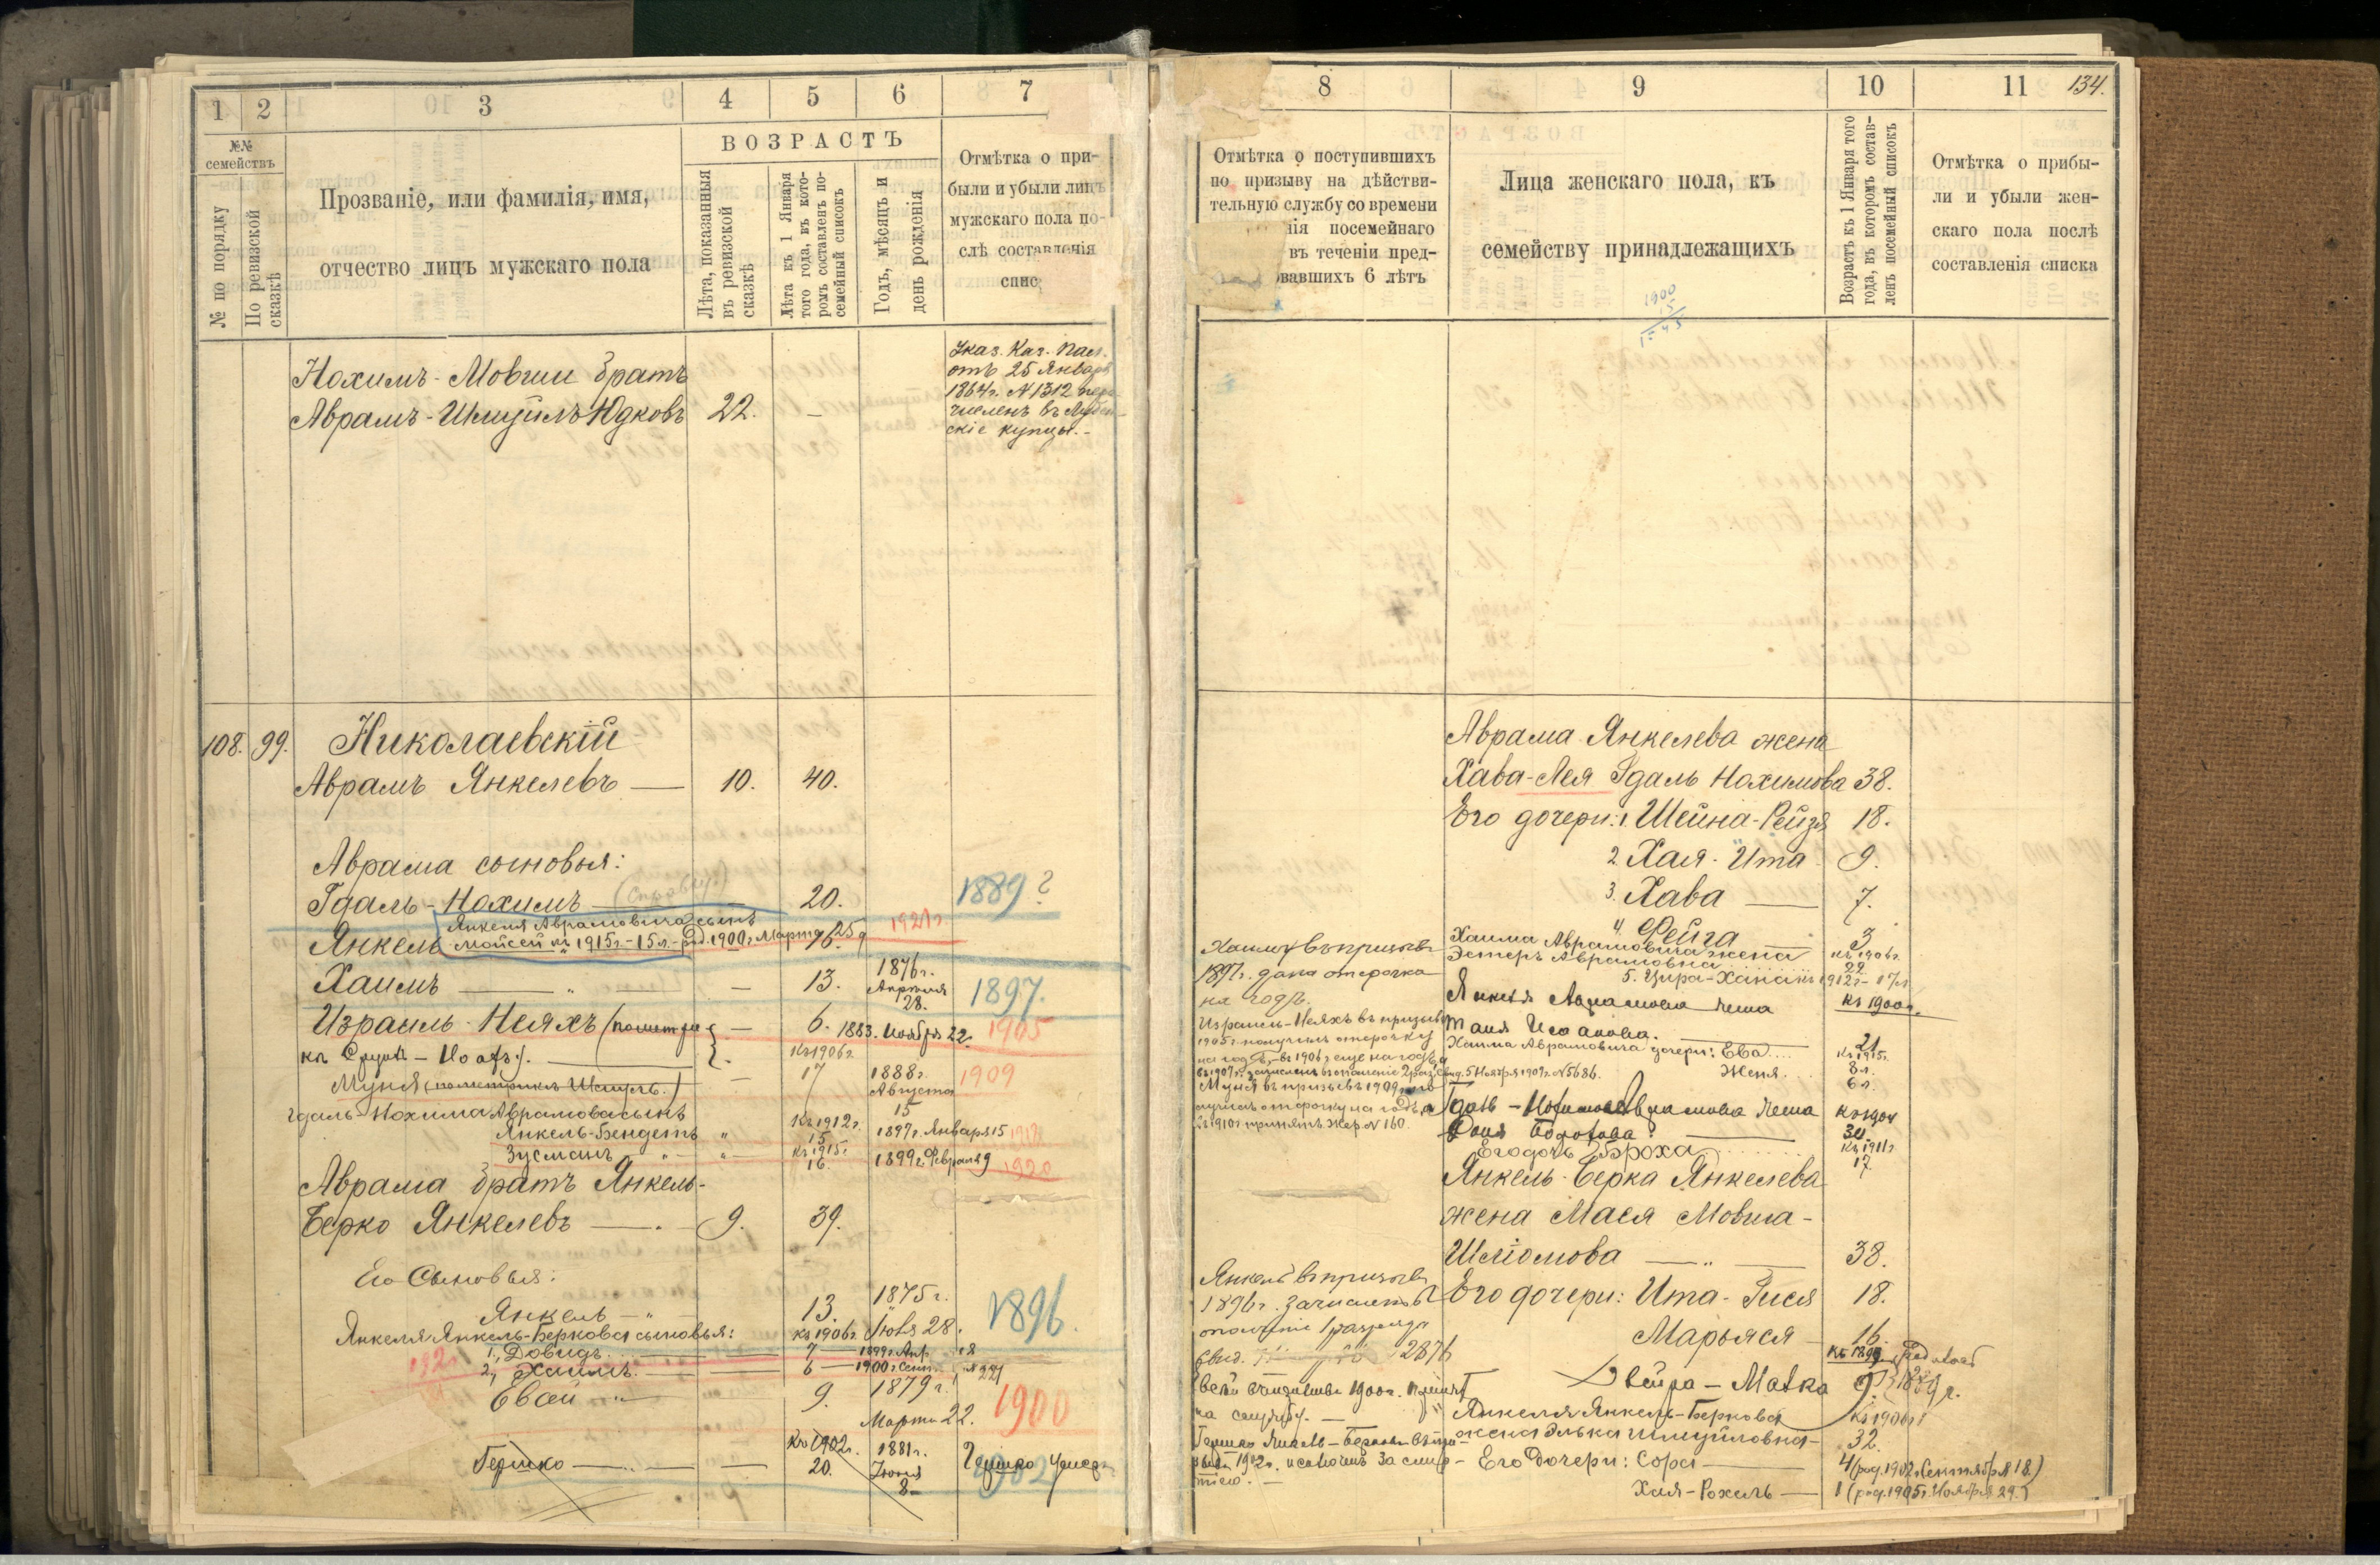 1 2 3 4 5 6 7
№№ семействъ
№ по порядку
По ревизской сказкѣ
Прозваніе, или фамилія, имя,
отчество лицъ мужскаго пола
ВОЗРАСТЪ
Лѣта, показанныя
въ ревизской
сказкѣ
Лѣта къ 1 Января
того года, въ кото-
ромъ составленъ по-
семейный списокъ
Годъ, мѣсяцъ и
день рожденія
Отмѣтка о при-
были и убыли лицъ
мужскаго пола по-
слѣ составленія
спис
Нохимъ-Мовши братъ
Аврамъ-Шмуйлъ Юдковъ 22. —
Указ. Каз. Пал.
отъ 25 Января
1864г. № 1312
численъ въ
скіе купцы.-
108. 99. Николаевскій
Аврамъ Янкелевъ — 10. 40.
Аврама сыновья:
Гдаль-Нохимъ — 20. 1889?
Янкеля Аврамовича сынъ
Янкель Мойсей къ 1915г.-15л.-род. 1900г. Марта 25д 1921г.
Хаимъ — " — 13. 1876г. Апрѣля 28. 1897.
Израиль-Неяхъ — 6. 1883. Ноября 22. 1905
Къ 1906г.
Муня — 17 1888г. Августа 15 1909
Гдаль-Нохима Аврамова сынъ
Янкель-Бендетъ " Къ 1912г. 15 1897г. Января 15
Зусманъ — " — " Къ 1915г. 16 1899г. Февраля 9 1920
Аврама братъ Янкель-
Берко Янкелевъ — . — 9. 39.
Его Сыновья:
Янкель — " 13. 1875г. Іюля 28. 1896.
Янкеля Янкель-Беркова сыновья: Къ 1906г.
1, Довидъ — 7 — 1899г. Апр. 18
2, Хаимъ. — 6 — 1900г. Сент.
Евсей " 9. 1879г. Марта 22. 1900
Гершко — " — Къ 1902г. 20. 1881г. Іюня 8- Гершко умеръ 1902
8 9 10 11 134.
Отмѣтка о поступившихъ
по призыву на дѣйстви-
тельную службу со времени
нія посемейнаго
въ теченіи пред-
вавшихъ 6 лѣтъ
Лица женскаго пола, къ
семейству принадлежащихъ
Возрастъ къ 1 Января того
года, въ которомъ состав-
ленъ посемейный списокъ
Отмѣтка о прибы-
ли и убыли жен-
скаго пола послѣ
составленія списка
1900
Аврама Янкелева жена
Хава-Лея Гдаль Нохимова 38.
Его дочери: 1. Шейна-Рейзя 18.
2. Хая-Ита 9.
3. Хава — 7.
4 Фейга 3
Хаимъ въ призывъ
1897г. дана отсрочка
на годъ.
Хаима Аврамовича жена
Эстеръ Аврамовна къ 1906г. 22
5. Цира-Хана къ 1912г - 17л
Янкеля Абрамова жена къ 1900г.
Таня Исаакова. — 21
Израиль-Неяхъ въ призывъ
1905г. получилъ отсрочку
на годъ, - въ 1906г еще на годъ,
въ 1907г. зачисленъ въ ополченіе 2 раз. Свид. 5 Ноября 1907г. №5686.
Хаима Аврамовича дочери: Ева.... Къ 1915г. 8л.
Женя.... 6л.
Муня въ призывъ 1909г. по-
лучилъ отсрочку на годъ, а
въ 1910г принятъ Жер. № 160.
Гдаль-Нохима Абрамова жена
30
Его дочь Броха ........ Къ 1911г 17
Янкель-Берка Янкелева
жена Мася Мовша-
Шліомова — " — 38.
Янкель въ призывъ
1896г. зачисленъ въ
ополченіе 1 разряда
Свид. 2876
Его дочери: Ита-Гися 18.
Марьяся — 16.
Двейра-Матка 9.
Евсей въ призывъ 1900г. принятъ
на службу. —
Янкеля Янкель-Беркова Къ 1906г
жена Элька Шмуйловна - 32.
Гершко Янкель-Берковъ
1902г. исключенъ за смер-
тію. —
Его дочери: Сора — 4 (род. 1902г. Сентября 18.)
Хая-Рохель — 1 (род. 1905г. Ноября 29.)